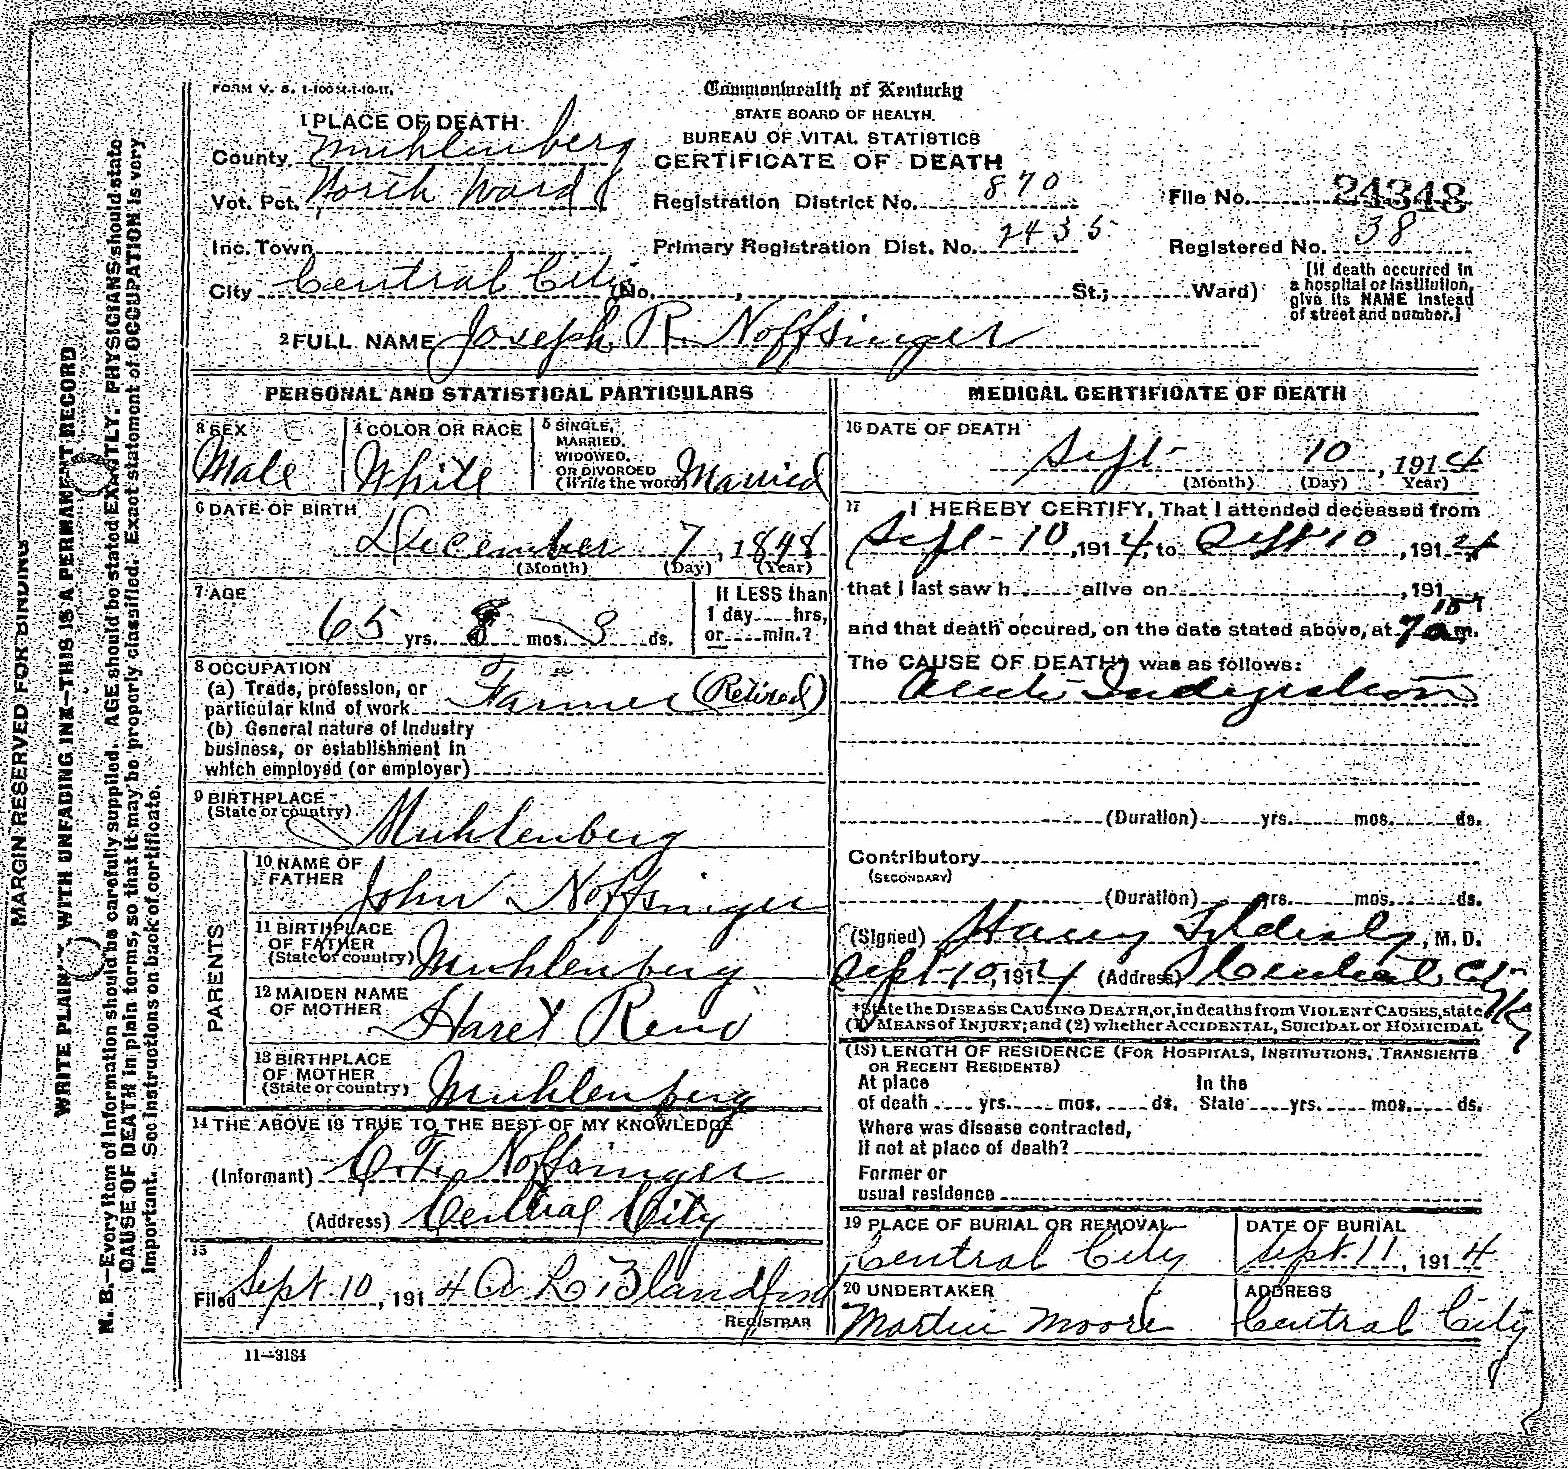 FORM V. S. 1-100M-1-10-11.
Commonwealth of Kentucky
STATE BOARD OF HEALTH.
BUREAU OF VITAL STATISTICS
CERTIFICATE OF DEATH
1 PLACE OF DEATH
County Muhlenberg
Vot. Pct. North Ward
Registration District No. 870
File No. 24348
Inc. Town
Primary Registration Dist. No. 2435
Registered No. 38
City Central City (No. , St.; Ward)
[If death occurred in
a hospital or institution,
give its NAME instead
of street and number.]
2 FULL NAME Joseph R. Noffsinger
PERSONAL AND STATISTICAL PARTICULARS
3 SEX
Male
4 COLOR OR RACE
White
5 SINGLE,
MARRIED,
WIDOWED,
OR DIVORCED
(Write the word) Married
6 DATE OF BIRTH
December 7, 1848
(Month) (Day) (Year)
7 AGE
65 yrs. 8 mos. 3 ds.
If LESS than
1 day hrs,
or min.?
8 OCCUPATION
(a) Trade, profession, or
particular kind of work Farmer (Retired)
(b) General nature of Industry
business, or establishment in
which employed (or employer)
9 BIRTHPLACE
(State or country)
Muhlenberg
PARENTS
10 NAME OF
FATHER
John Noffsinger
11 BIRTHPLACE
OF FATHER
(State or country) Muhlenberg
12 MAIDEN NAME
OF MOTHER
Reno
13 BIRTHPLACE
OF MOTHER
(State or country) Muhlenberg
14 THE ABOVE IS TRUE TO THE BEST OF MY KNOWLEDGE
(Informant) C. T. Noffsinger
(Address) Central City
15
Filed Sept. 10, 1914 Blandford
REGISTRAR
11-3184
MEDICAL CERTIFICATE OF DEATH
16 DATE OF DEATH
Sept- 10, 1914
(Month) (Day) Year)
17 I HEREBY CERTIFY, That I attended deceased from
Sept- 10, 1914, to Sept 10, 1914
that I last saw h alive on , 191
and that death occured, on the date stated above, at 7 15 am.
The CAUSE OF DEATH* was as follows:
Acute Indigestion
(Duration) yrs. mos. ds.
Contributory
(SECONDARY)
(Duration) yrs. mos. ds.
(Signed) Harry , M. D.
Sept-10, 1914 (Address) Central City Ky
*State the DISEASE CAUSING DEATH, or, in deaths from VIOLENT CAUSES, state
(1) MEANS of INJURY; and (2) whether ACCIDENTAL, SUICIDAL or HOMICIDAL
(18) LENGTH OF RESIDENCE (FOR HOSPITALS, INSTITUTIONS, TRANSIENTS
OR RECENT RESIDENTS)
At place
of death yrs. mos. ds.
In the
State yrs. mos. ds.
Where was disease contracted,
If not at place of death?
Former or
usual residence
19 PLACE OF BURIAL OR REMOVAL
Central City
DATE OF BURIAL
Sept. 11, 1914
20 UNDERTAKER
Martin Moore
ADDRESS
Central City
MARGIN RESERVED FOR BINDING
WRITE PLAINLY, WITH UNFADING INK—THIS IS A PERMANENT RECORD
N. B.—Every item of information should be carefully supplied. AGE should be stated EXACTLY. PHYSICIANS should state
CAUSE OF DEATH in plain terms, so that it may be properly classified. Exact statement of OCCUPATION is very
important. See instructions on back of certificate.